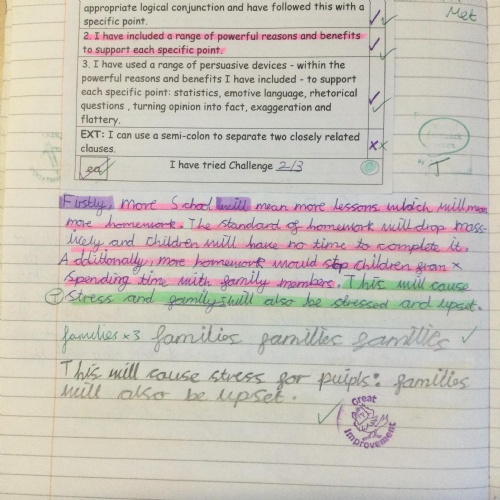 appropriate logical conjunction and have followed this with a
specific point.
2. I have included a range of powerful reasons and benefits
to support each specific point.
3. I have used a range of persuasive devices - within the
powerful reasons and benefits I have included - to support
each specific point: statistics, emotive language, rhetorical
questions , turning opinion into fact, exaggeration and
flattery.
EXT: I can use a semi-colon to separate two closely related
clauses.
I have tried Challenge 2/3
Met
T
Firstly, more School will mean more lessons which will mean
more homework. The standard of homework will drop mass-
ively and children will have no time to complete it.
Additionally, more homework would stop children from
spending time with family members. This will cause
stress and familys will also be stressed and upset.
families x 3 families families families
This will cause stress for puipls: families
will also be upset.
Great
Improvement